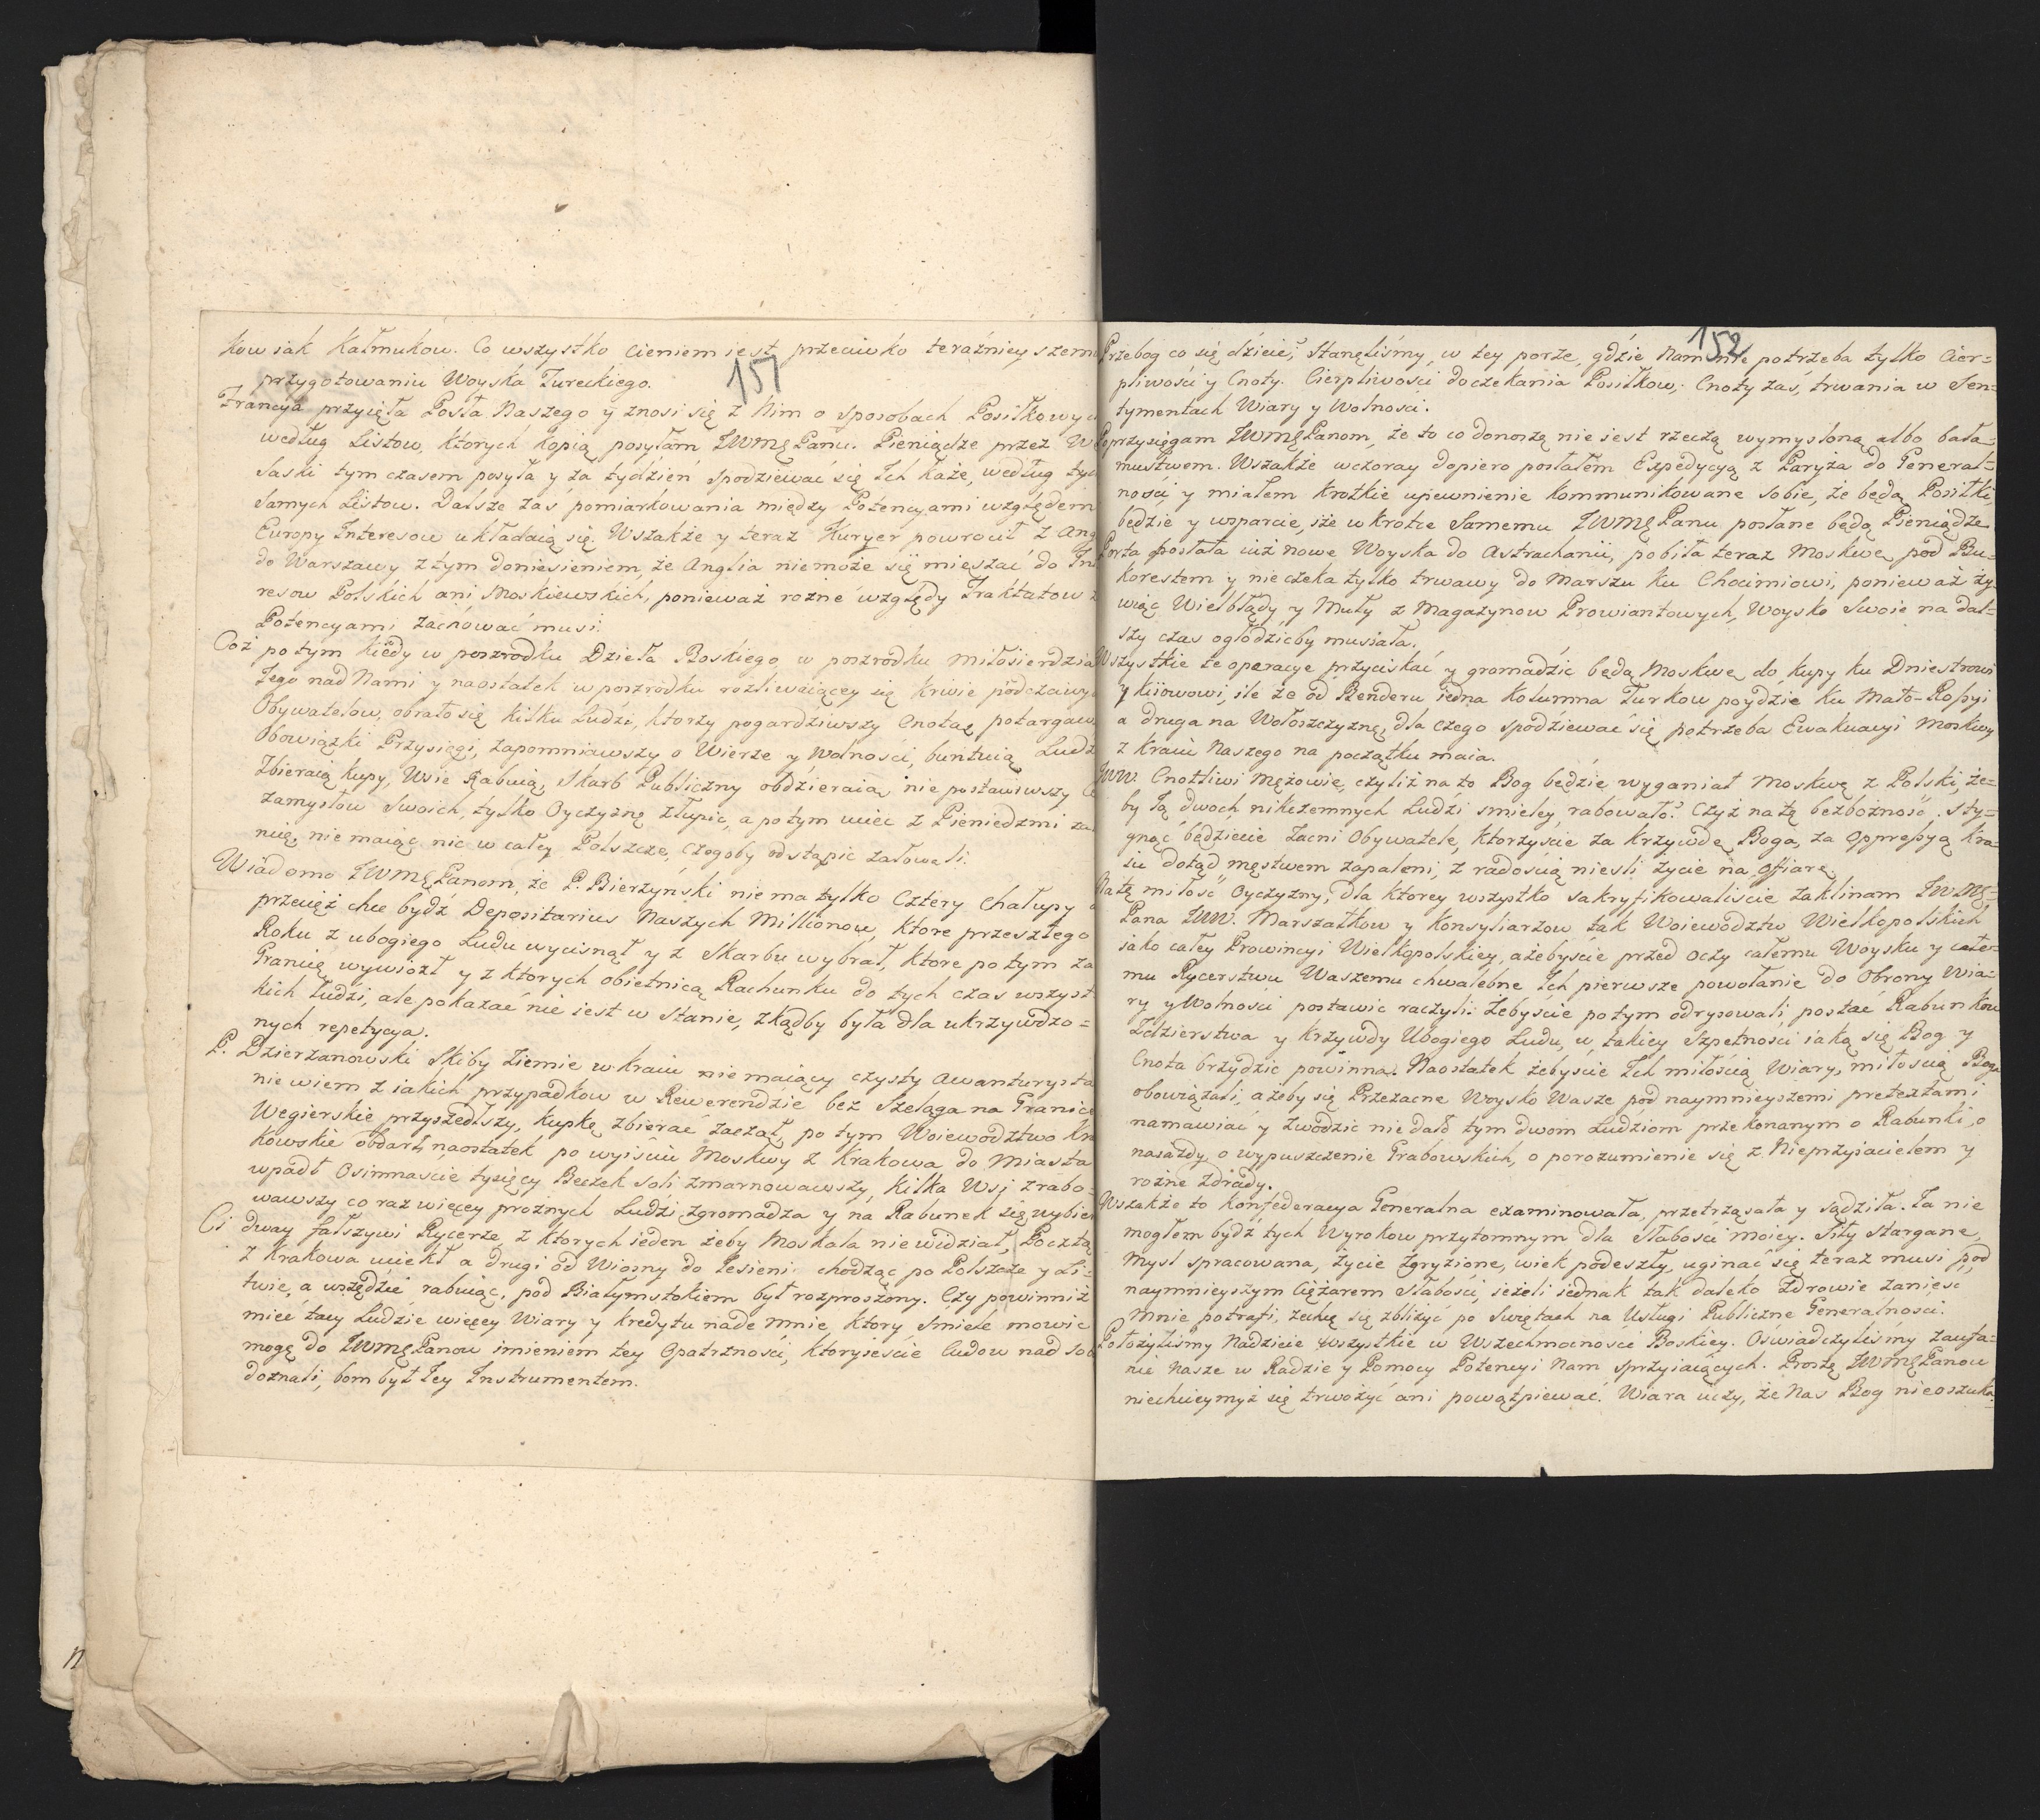 151
kow iak Kałmukow. Co wszystko cieniem iest przeciwko teraźnieyszem
przygotowaniu Woyska Tureckiego.
Francya przyięła Posła Naszego y znosi się z Nim o sposobach Posiłkowyc
według Listow, ktorych kopią posyłam JWMęPanu. Pieniądze przez W
Saski tym czasem posyła y za tydzień spodziewać się Ich każe, według tyc
samych Listow. Dalsze zaś pomiarkowania między Potencyami względem
Europy Interesow układaią się. Wszakże y teraz Kuryer powrocił z Ang
do Warszawy z tym doniesieniem, że Anglia nie może się mięszać do Int
resow Polskich ani Moskiewskich, ponieważ rożne względy Traktatow z
Potencyami zachować musi.
Coż po tym kiedy w poszrodku Dzieła Boskiego, w poszrodku miłosierdzia
Jego nad Nami y naostatek w poszrodku rozliwaiącey się krwie podczciwyc
Obywatelow, obrało się kilku Ludzi, ktorzy pogardziwszy Cnotą, potargaw
Obowiązki Przysięgi, zapomniawszy o Wierze y Wolności, buntuią Ludz
Zbieraią kupy, Wsie Rabuią, Skarb Publiczny obdzieraią nie postawiwszy Ce
zamysłow Swoich, tylko Oyczyznę złupić, a potym uciec z Pieniędzmi za
nicę, nie maiąc nic w całey Polszcze, czegoby odstąpić żałowali.
Wiadomo JWMęPanom, że P. Bierzyński nie ma tylko cztery Chałupy a
przecięż chce bydź Depositarius Naszych Millionow, ktore przeszłego
Roku z ubogiego Ludu wycisnął y z Skarbu wybrał, ktore potym za
Granicę wywiozł y z ktorych obietnicą Rachunku do tych czas wszyst
kich łudzi, ale pokazać nie iest w stanie, zkądby była dla ukrzywdzo=
nych repetycya.
P. Dzierzanowski Skiby Ziemie w kraiu nie maiący czysty Awanturysta
nie wiem z iakich przypadkow w Rewerendzie bez Szeląga na Granice
Węgierskie przyszedłszy, kupkę zbierać zaczął, po tym Woiewodztwo Kra
kowskie obdarł, naostatek po wyiściu Moskwy z Krakowa do Miasta
wpadł Osimnaście tysięcy Beczek Soli zmarnowawszy, kilka Wsi zrabo=
wawszy co raz więcey prożnych Ludzi zgromadza y na Rabunek się wybier
Ci dway fałszywi Rycerze, z ktorych ieden żeby Moskala nie widział, Pocztą
z Krakowa uciekł a drugi od Wiosny do Iesieni chodząc po Polszcze y Li=
twie, a wszędzie rabuiąc, pod Białymstokiem był rozproszony. Czy powinniż
mieć tacy Ludzie więcey Wiary y kredytu nade mnie, ktory śmiele mowić
mogę do JWMęPanow imieniem tey Opatrzności, ktoryieście Cudow nad sob
doznali, bom był Iey Instrumentem.
152
Przebog co się dzieie, Stanęliśmy w tey porze, gdzie Nam nie potrzeba tylko Cier=
pliwości y Cnoty. Cierpliwości doczekania Posiłkow, Cnoty zaś, trwania w Sen=
tymentach Wiary y Wolności.
Poprzysięgam JWMęPanom, że to co donoszę nie iest rzeczą wymysloną albo bała=
muctwem. Wszakże wczoray dopiero posłałem Expedycyą z Paryża do General=
ności, y miałem krotkie upewnienie kommunikowane sobie, że będą Posiłki,
będzie y wsparcie, że w krotce Samemu JWMęPanu posłane będą Pieniądze
Porta posłała iuż nowe Woyska do Astrachanii, pobiła teraz Moskwę pod Bu=
korestem y nie czeka tylko trwawy do Marszu ku Chocimiowi, ponieważ ży=
wiąc Wielbłądy y Muły z Magazynow Prowiantowych, Woysko Swoie na dal=
szy czas ogłodzićby musiała.
Wszystkie te operacye przyciskać y gromadzić będą Moskwę do kupy ku Dniestrowi
y Kiiowowi, ile że od Benderu iedna Kolumna Turkow poydzie ku Mało-Rossyi
a druga na Wołoszczyznę, dla czego spodziewać się potrzeba Ewakuacyi Moskwy
z Kraiu Naszego na początku maia.
JWW. Cnotliwi Mężowie, czyliż na to Bog będzie wyganiał Moskwę z Polski, że=
by Ią dwoch nikczemnych Ludzi smieley rabowało? Czyż na tę bezbożność sty=
gnąć będziecie Zacni Obywatele, ktorzyście za krzywdę Boga, za oppressyą Kra=
iu dotąd męstwem zapaleni, z radością nieśli życie na offiarę.
Na tę miłość Oyczyzny, dla ktorey wszystko sakryfikowaliście zaklinam JWMę=
Pana JWW. Marszałkow y Konsyliarzow tak Woiewodztw Wielkopolskich
iako całey Prowincyi Wielkopolskiey, ażebyście przed oczy całemu Woysku y całe=
mu Rycerstwu Waszemu chwalebne Ich pierwsze powołanie do Obrony Wia=
ry y Wolności postawić raczyli: Żebyście po tym odrysowali postać Rabunkow
Zdzierstwa y krzywdy Ubogiego Ludu, w takiey Szpetności iaką się Bog y
Cnota brzydzić powinna. Naostatek żebyście Ich miłością Wiary, miłością Boga
obowiązali, ażeby się Przezacne Woysko Wasze pod naymnieyszemi pretextami
namawiać y zwodzić nie dało tym dwom Ludziom przekonanym o Rabunki, o
naiazdy, o wypuszczenie Grabowskich, o porozumienie się z Nieprzyiacielem y
rożne zdrady.
Wszakże to Konfederacya Generalna examinowała, przetrząsała y sądziła. Ia nie
mogłem bydź tych Wyrokow przytomnym dla słabości moiey. Siły stargane,
Mysl spracowana, życie zgryzione, wiek podeszły, uginać się teraz musi pod
naymnieyszym Ciężarem Słabości, ieżeli iednak tak daleko zdrowie zanieść
mnie potrafi, zechcę się zbliżyć po Swiętach na Usługi Publiczne Generalności.
Położyliśmy Nadzieie Wszystkie w Wszechmocności Boskiey. Oswiadczyliśmy zaufa=
nie Nasze w Radzie y Pomocy Potencyi Nam sprzyiaiących. Proszę JWMęPanow
niechcieymyż się trwożyć ani powątpiewać. Wiara uczy, że Nas Bog nieoszuka